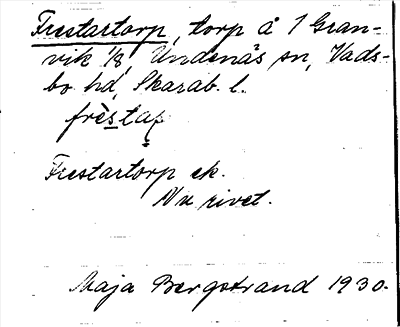 Frestartorp, torp å 1 Gran-
vik 1/8, Undenäs sn, Vads-
bo hd, Skarab. l.
frèstaʀ
Frestartorp ek.
Nu rivet.
Maja Bergstrand 1930.